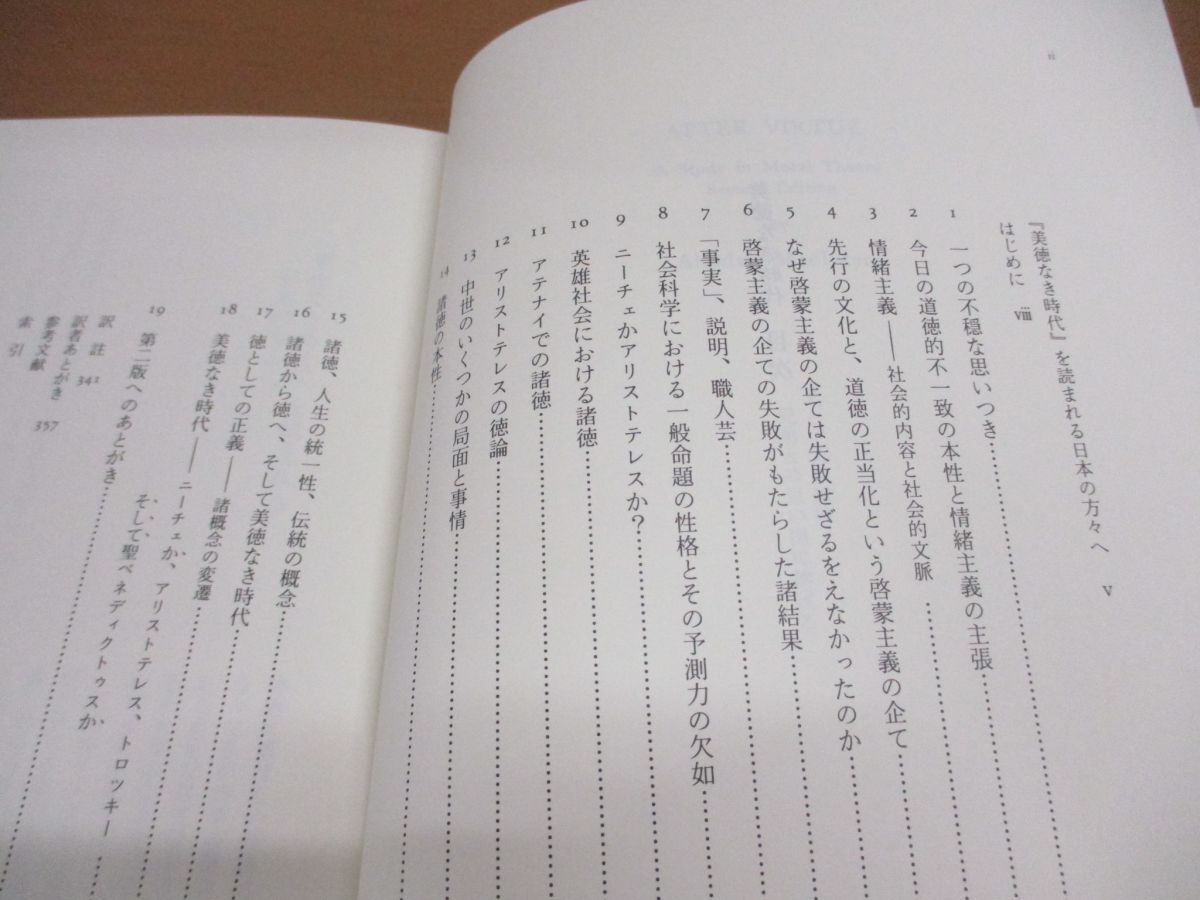 ii
『美徳なき時代』を読まれる日本の方々へ v
はじめに viii
1 一つの不穏な思いつき
2 今日の道徳的不一致の本性と情緒主義の主張
3 情緒主義——社会的内容と社会的文脈
4 先行の文化と、道徳の正当化という啓蒙主義の企て
5 なぜ啓蒙主義の企ては失敗せざるをえなかったのか
6 啓蒙主義の企ての失敗がもたらした諸結果
7 「事実」、説明、職人芸
8 社会科学における一般命題の性格とその予測力の欠如
9 ニーチェかアリストテレスか?
10 英雄社会における諸徳
11 アテナイでの諸徳
12 アリストテレスの徳論
13 中世のいくつかの局面と事情
14 諸徳の本性
15 諸徳、人生の統一性、伝統の概念
16 諸徳から徳へ、そして美徳なき時代
17 徳としての正義——諸概念の変遷
18 美徳なき時代——ニーチェか、アリストテレス、トロツキー
そして聖ベネディクトゥスか
19 第二版へのあとがき
訳註 342
訳者あとがき 357
参考文献
索引